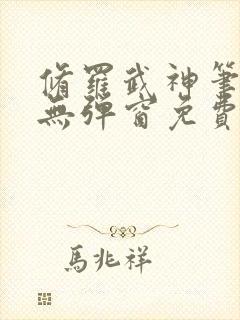 脩羅武神筆
無彈窗免費
馬兆祥